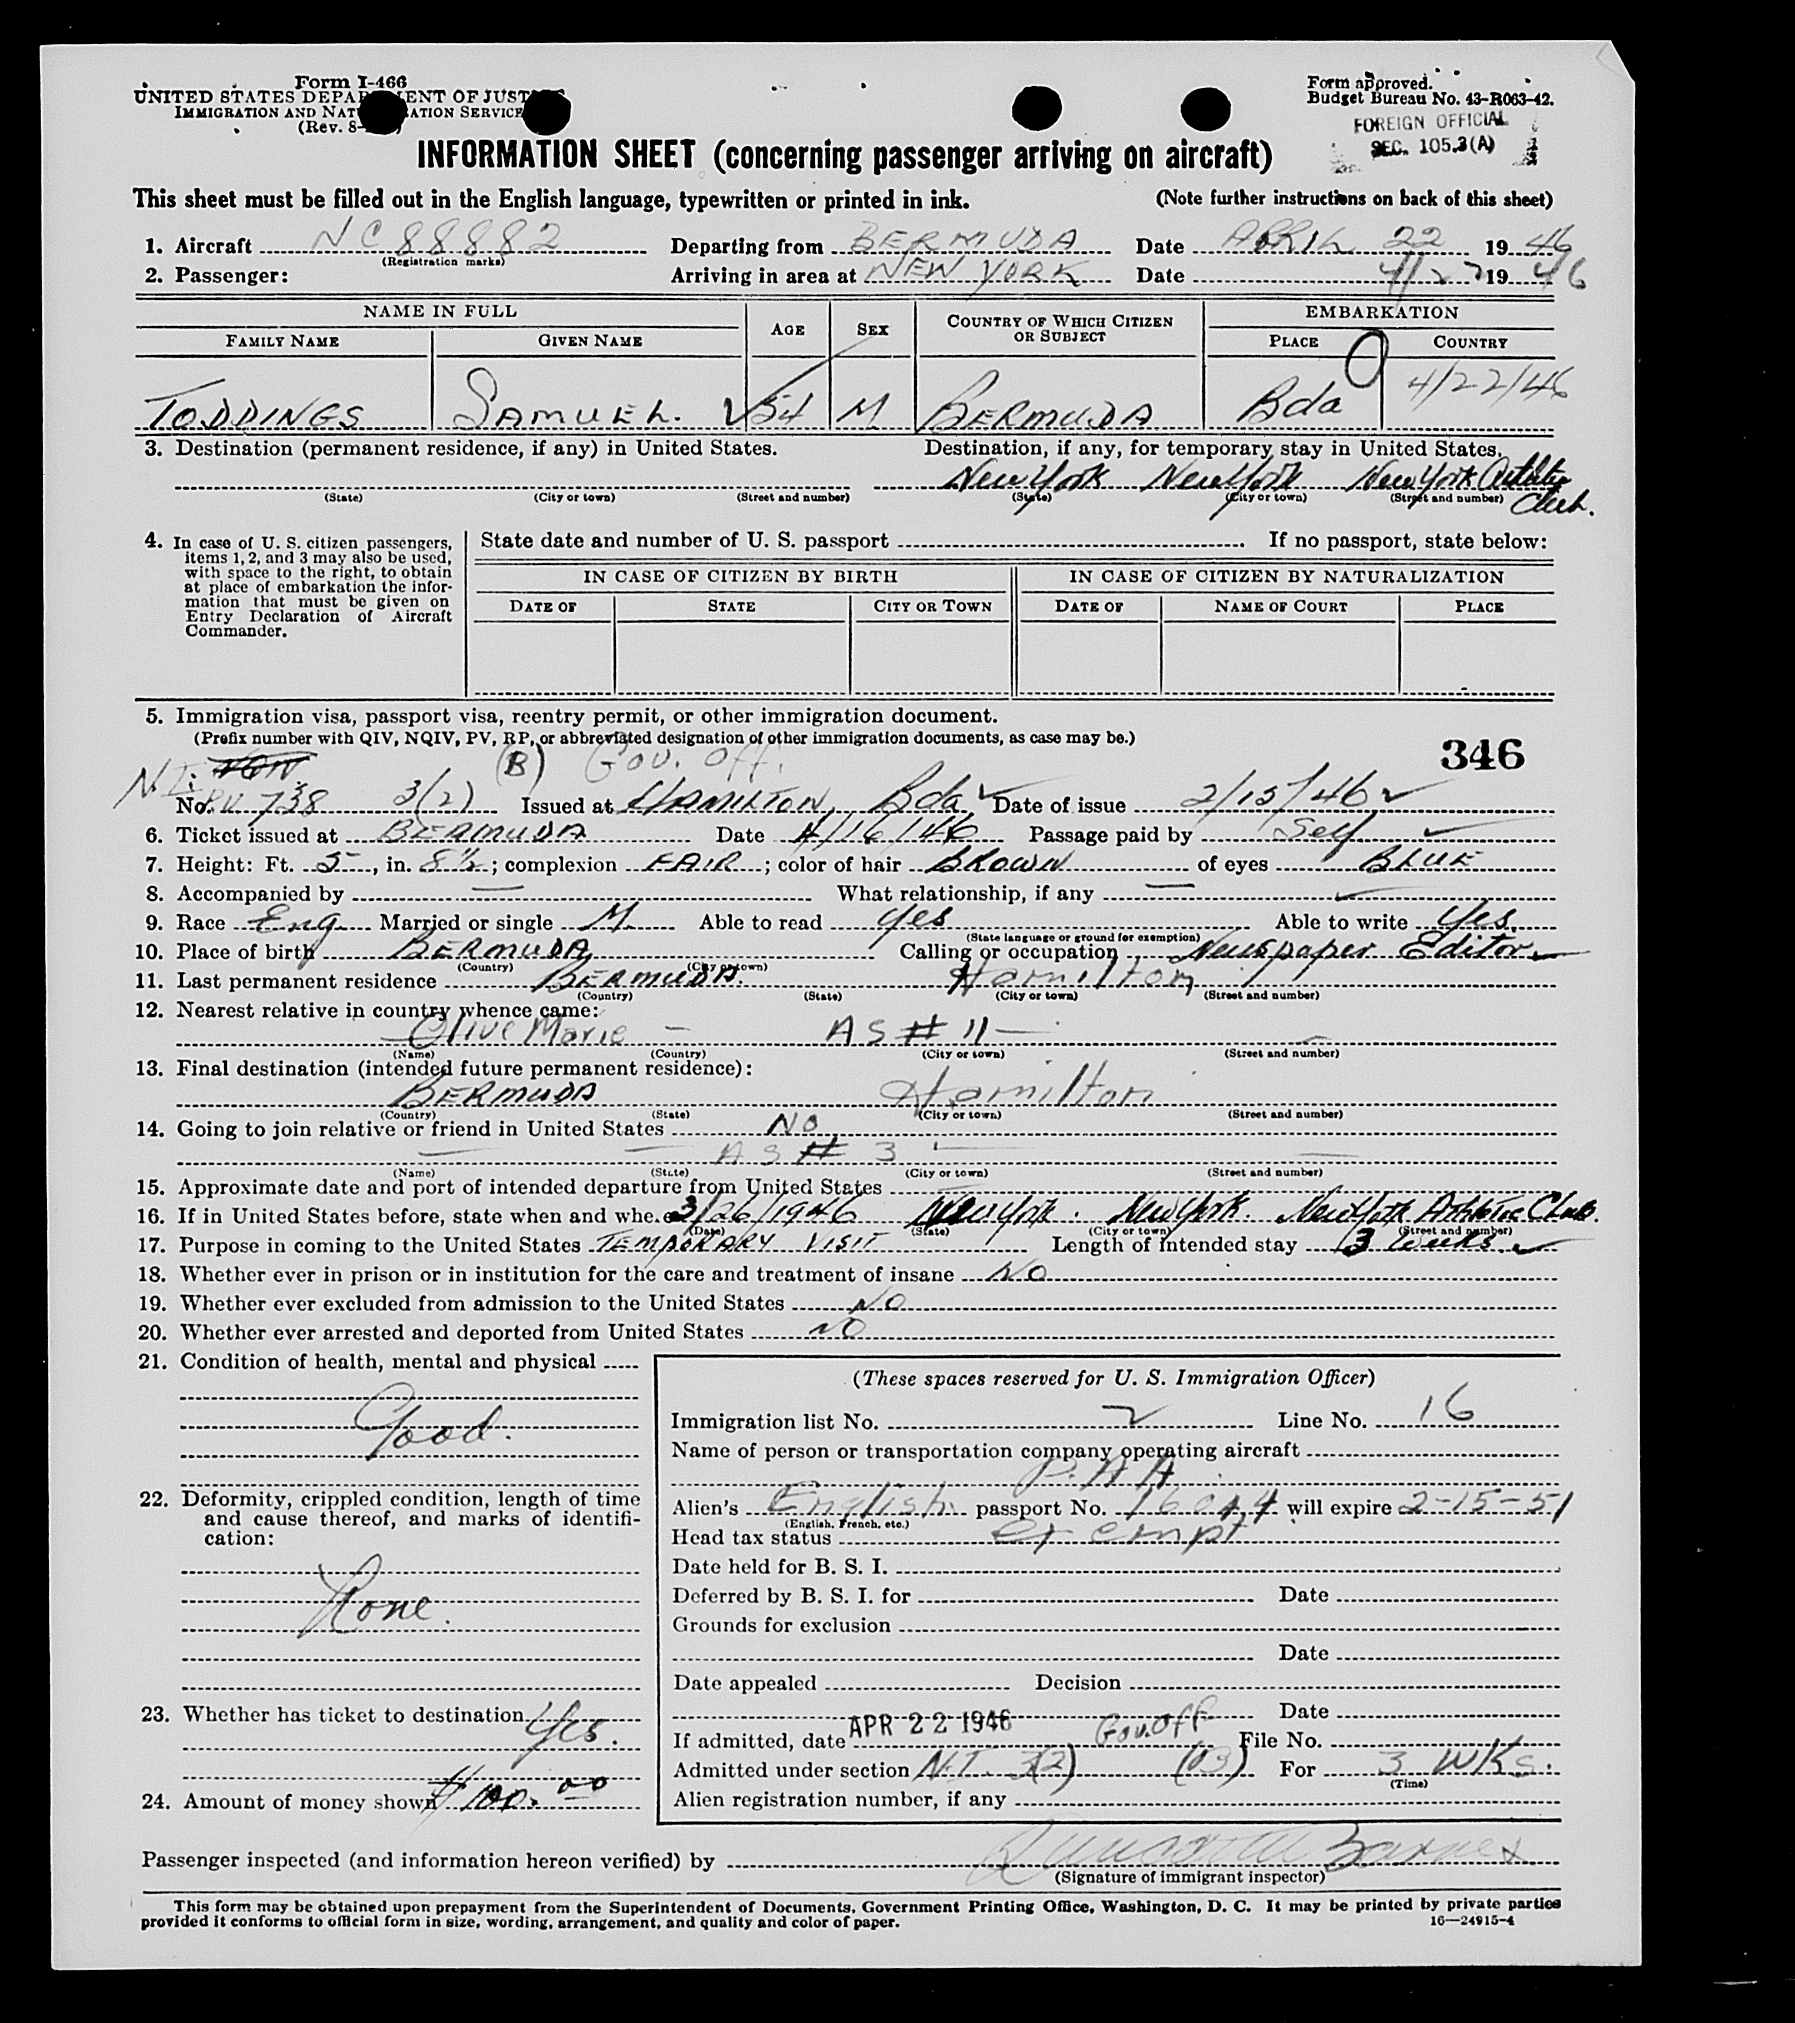 Form I-466
UNITED STATES DEPARTMENT OF JUSTICE
IMMIGRATION AND NATURALIZATION SERVICE
(Rev. 8-
Form approved.
Budget Bureau No. 43-R063-42.
FOREIGN OFFICIAL
SEC. 105.3(A)
INFORMATION SHEET (concerning passenger arriving on aircraft)
This sheet must be filled out in the English language, typewritten or printed in ink. (Note further instructions on back of this sheet)
1. Aircraft NC88882 Departing from BERMUDA Date APRIL 22 1946
(Registration marks)
2. Passenger: Arriving in area at NEW YORK Date 4/22 1946
NAME IN FULL AGE SEX COUNTRY OF WHICH CITIZEN OR SUBJECT EMBARKATION
FAMILY NAME GIVEN NAME PLACE COUNTRY
TODDINGS SAMUEL. 54 M BERMUDA Bda 4/22/46
3. Destination (permanent residence, if any) in United States. Destination, if any, for temporary stay in United States.
New York New York New York Athletic Club.
(State) (City or town) (Street and number) (State) (City or town) (Street and number)
4. In case of U. S. citizen passengers, items 1, 2, and 3 may also be used, with space to the right, to obtain at place of embarkation the information that must be given on Entry Declaration of Aircraft Commander.
State date and number of U. S. passport If no passport, state below:
IN CASE OF CITIZEN BY BIRTH IN CASE OF CITIZEN BY NATURALIZATION
DATE OF STATE CITY OR TOWN DATE OF NAME OF COURT PLACE
5. Immigration visa, passport visa, reentry permit, or other immigration document.
(Prefix number with QIV, NQIV, PV, RP, or abbreviated designation of other immigration documents, as case may be.)
346
N.I. (B) Gov. Off.
No. PV 738 3(2) Issued at HAMILTON, Bda Date of issue 2/15/46
6. Ticket issued at BERMUDA Date 4/16/46 Passage paid by Self
7. Height: Ft. 5, in. 8½; complexion FAIR; color of hair BROWN of eyes BLUE
8. Accompanied by — What relationship, if any —
9. Race Eng. Married or single M. Able to read yes Able to write Yes.
(State language or ground for exemption)
10. Place of birth BERMUDA Calling or occupation Newspaper Editor
(Country) (City or town)
11. Last permanent residence BERMUDA. Hamilton
(Country) (State) (City or town) (Street and number)
12. Nearest relative in country whence came:
Olive Marie — AS # 11 —
(Name) (Country) (City or town) (Street and number)
13. Final destination (intended future permanent residence):
BERMUDA Hamilton
(Country) (State) (City or town) (Street and number)
14. Going to join relative or friend in United States NO
— — AS # 3 — —
(Name) (State) (City or town) (Street and number)
15. Approximate date and port of intended departure from United States
16. If in United States before, state when and where 3/26/1946 New York. New York. New York Athletic Club.
(Date) (State) (City or town) (Street and number)
17. Purpose in coming to the United States TEMPORARY VISIT Length of intended stay 3 weeks
18. Whether ever in prison or in institution for the care and treatment of insane NO
19. Whether ever excluded from admission to the United States NO
20. Whether ever arrested and deported from United States NO
21. Condition of health, mental and physical
Good.
22. Deformity, crippled condition, length of time and cause thereof, and marks of identification:
None.
23. Whether has ticket to destination Yes.
24. Amount of money shown $100.00
(These spaces reserved for U. S. Immigration Officer)
Immigration list No. 2 Line No. 16
Name of person or transportation company operating aircraft
P.A.A.
Alien's English passport No. will expire 2-15-51
(English, French, etc.)
Head tax status exempt
Date held for B. S. I.
Deferred by B. S. I. for Date
Grounds for exclusion
Date
Date appealed Decision
Date
If admitted, date APR 22 1946 Gov. Off File No.
Admitted under section N.I. 3(2) For 3 WKS.
(Time)
Alien registration number, if any
Passenger inspected (and information hereon verified) by
(Signature of immigrant inspector)
This form may be obtained upon prepayment from the Superintendent of Documents, Government Printing Office, Washington, D. C. It may be printed by private parties
provided it conforms to official form in size, wording, arrangement, and quality and color of paper. 16—24915-4